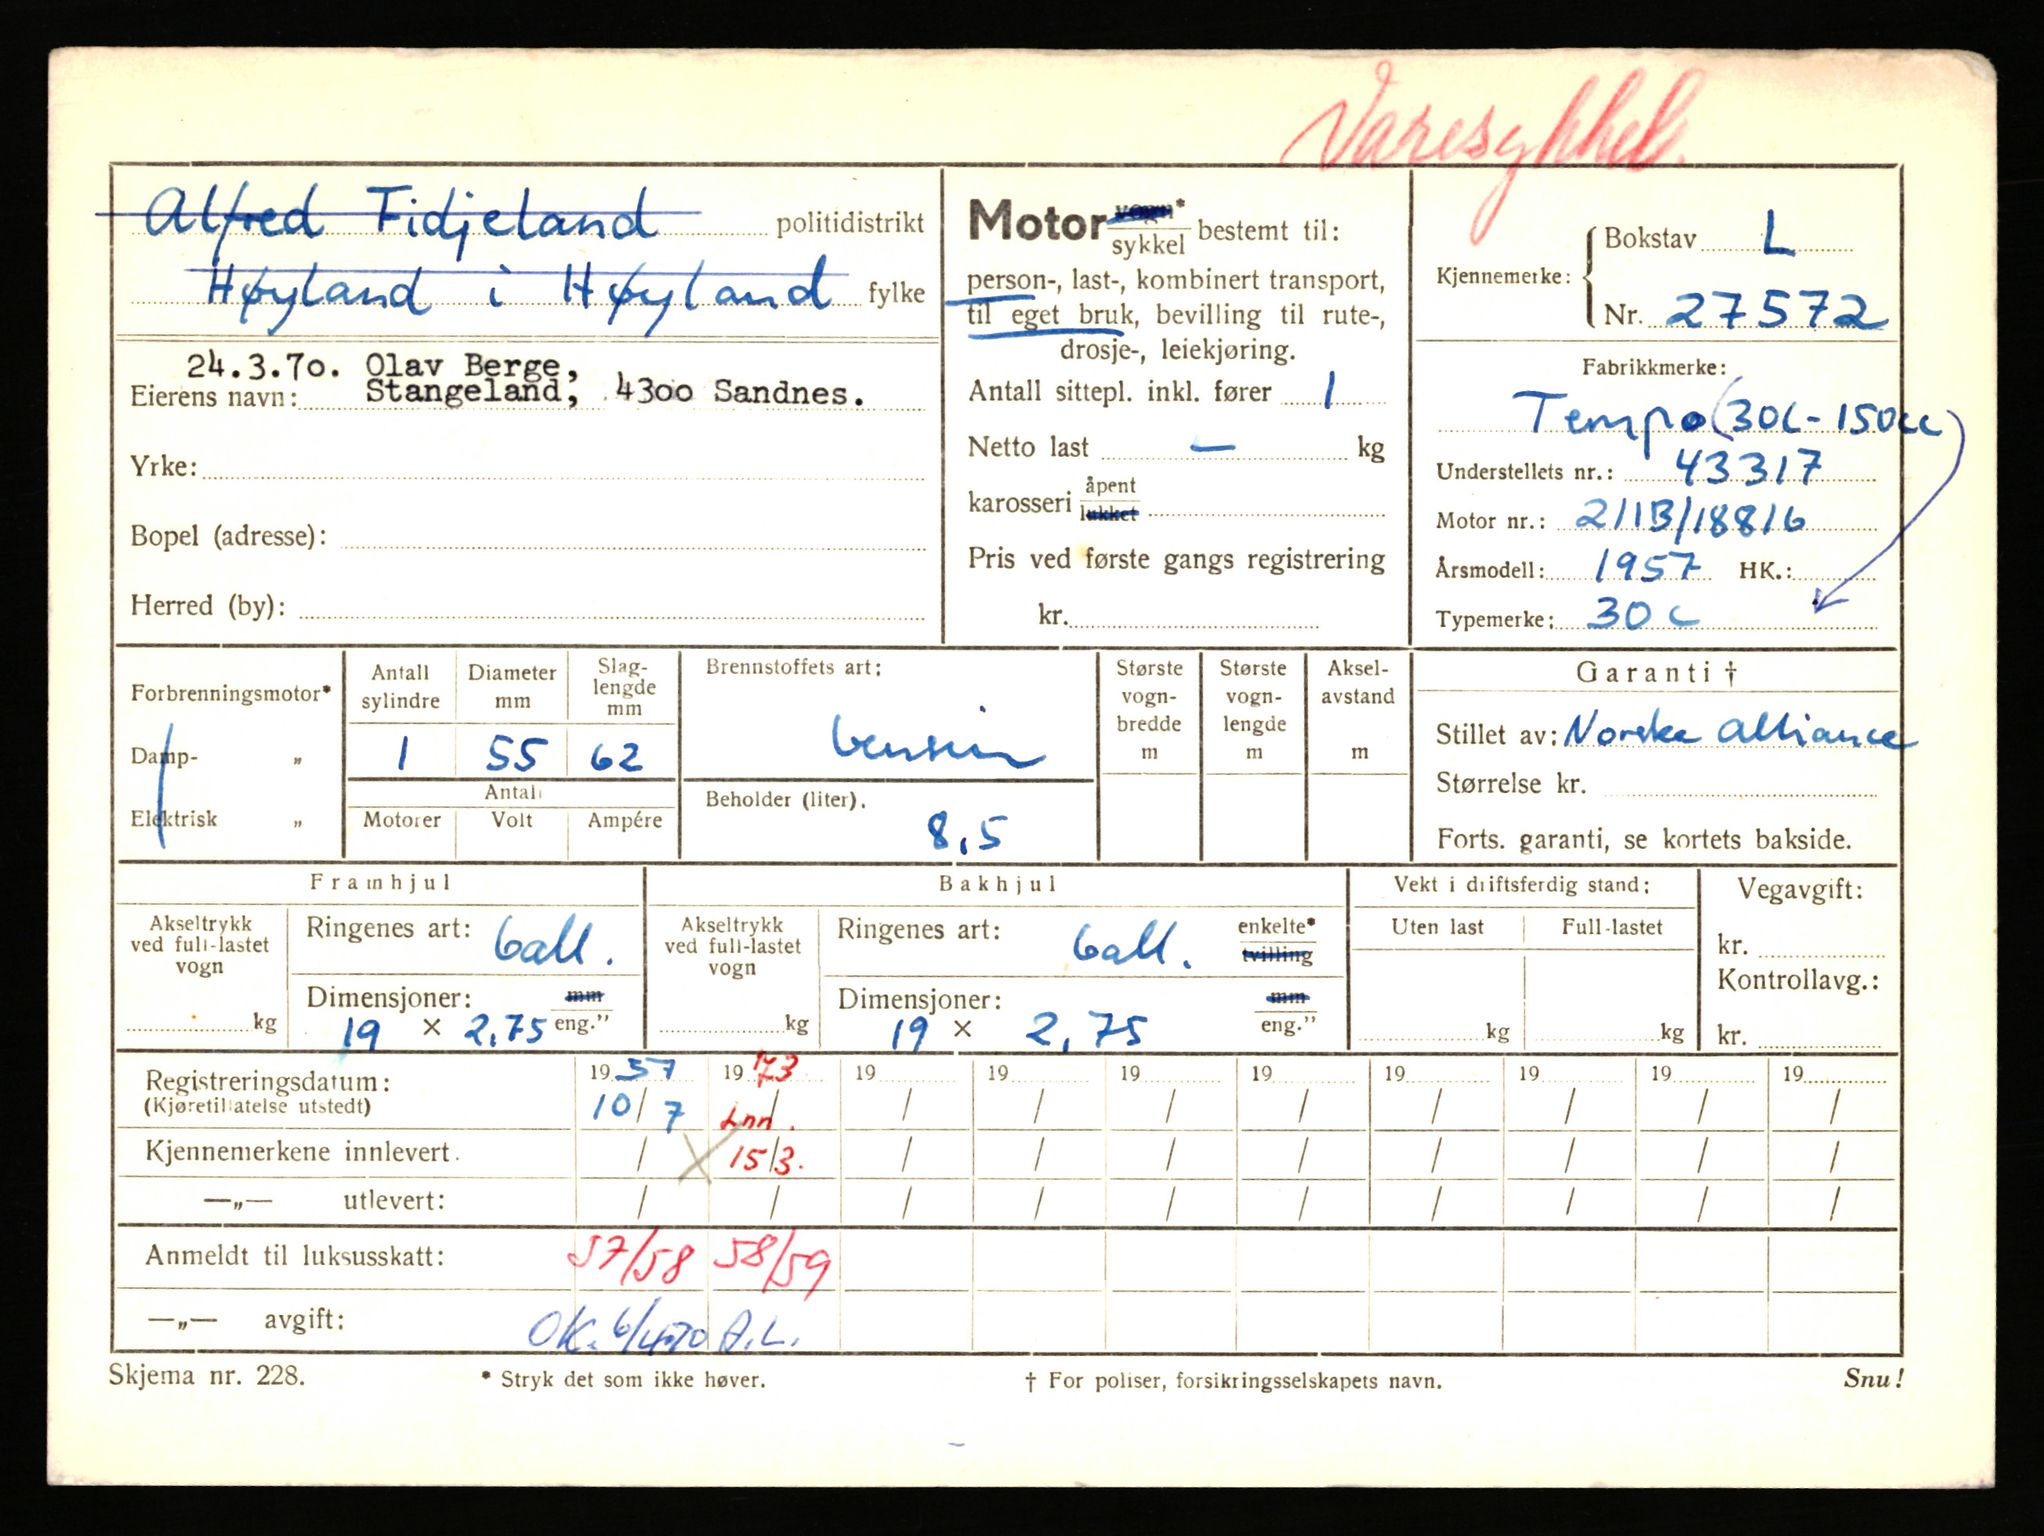 Varesykkel.
Alfred Fidjeland politidistrikt
Høyland i Høyland fylke
24.3.70. Olav Berge,
Eierens navn: Stangeland, 4300 Sandnes.
Yrke:
Bopel (adresse):
Herred (by):
Motor vogn* sykkel bestemt til:
person-, last-, kombinert transport,
til eget bruk, bevilling til rute-,
drosje-, leiekjøring.
Antall sittepl. inkl. fører 1
Netto last — kg
karosseri åpent lukket
Pris ved første gangs registrering
kr.
Kjennemerke: { Bokstav L
Nr. 27572
Fabrikkmerke:
Tempo (30C-150cc)
Understellets nr.: 43317
Motor nr.: 211B/18816
Årsmodell: 1957 HK.:
Typemerke: 30 C
Forbrenningsmotor*
Damp- „
Elektrisk „
Antall sylindre
1
Diameter mm
55
Slag-lengde mm
62
Antall
Motorer Volt Ampére
Brennstoffets art:
bensin
Beholder (liter).
8,5
Største vogn-bredde m
Største vogn-lengde m
Aksel-avstand m
Garanti †
Stillet av: Norske Alliance
Størrelse kr.
Forts. garanti, se kortets bakside.
Framhjul
Akseltrykk ved full-lastet vogn
kg
Ringenes art: ball.
Dimensjoner: mm
19 x 2,75 eng.”
Bakhjul
Akseltrykk ved full-lastet vogn
kg
Ringenes art: ball. enkelte* tvilling
Dimensjoner: mm
19 x 2,75 eng.”
Vekt i driftsferdig stand:
Uten last Full-lastet
kg kg
Vegavgift:
kr.
Kontrollavg.:
kr.
Registreringsdatum: 19 57 19 73 19 19 19 19 19 19 19 19
(Kjøretillatelse utstedt) 10/7 Inn. / / / / / / / / /
Kjennemerkene innlevert. / X 15/3. / / / / / / / /
—„— utlevert: / / / / / / / / / /
Anmeldt til luksusskatt: 57/58 58/59
—„— avgift: OK. 6/4-70 A.L.
Skjema nr. 228. * Stryk det som ikke høver. † For poliser, forsikringsselskapets navn. Snu!